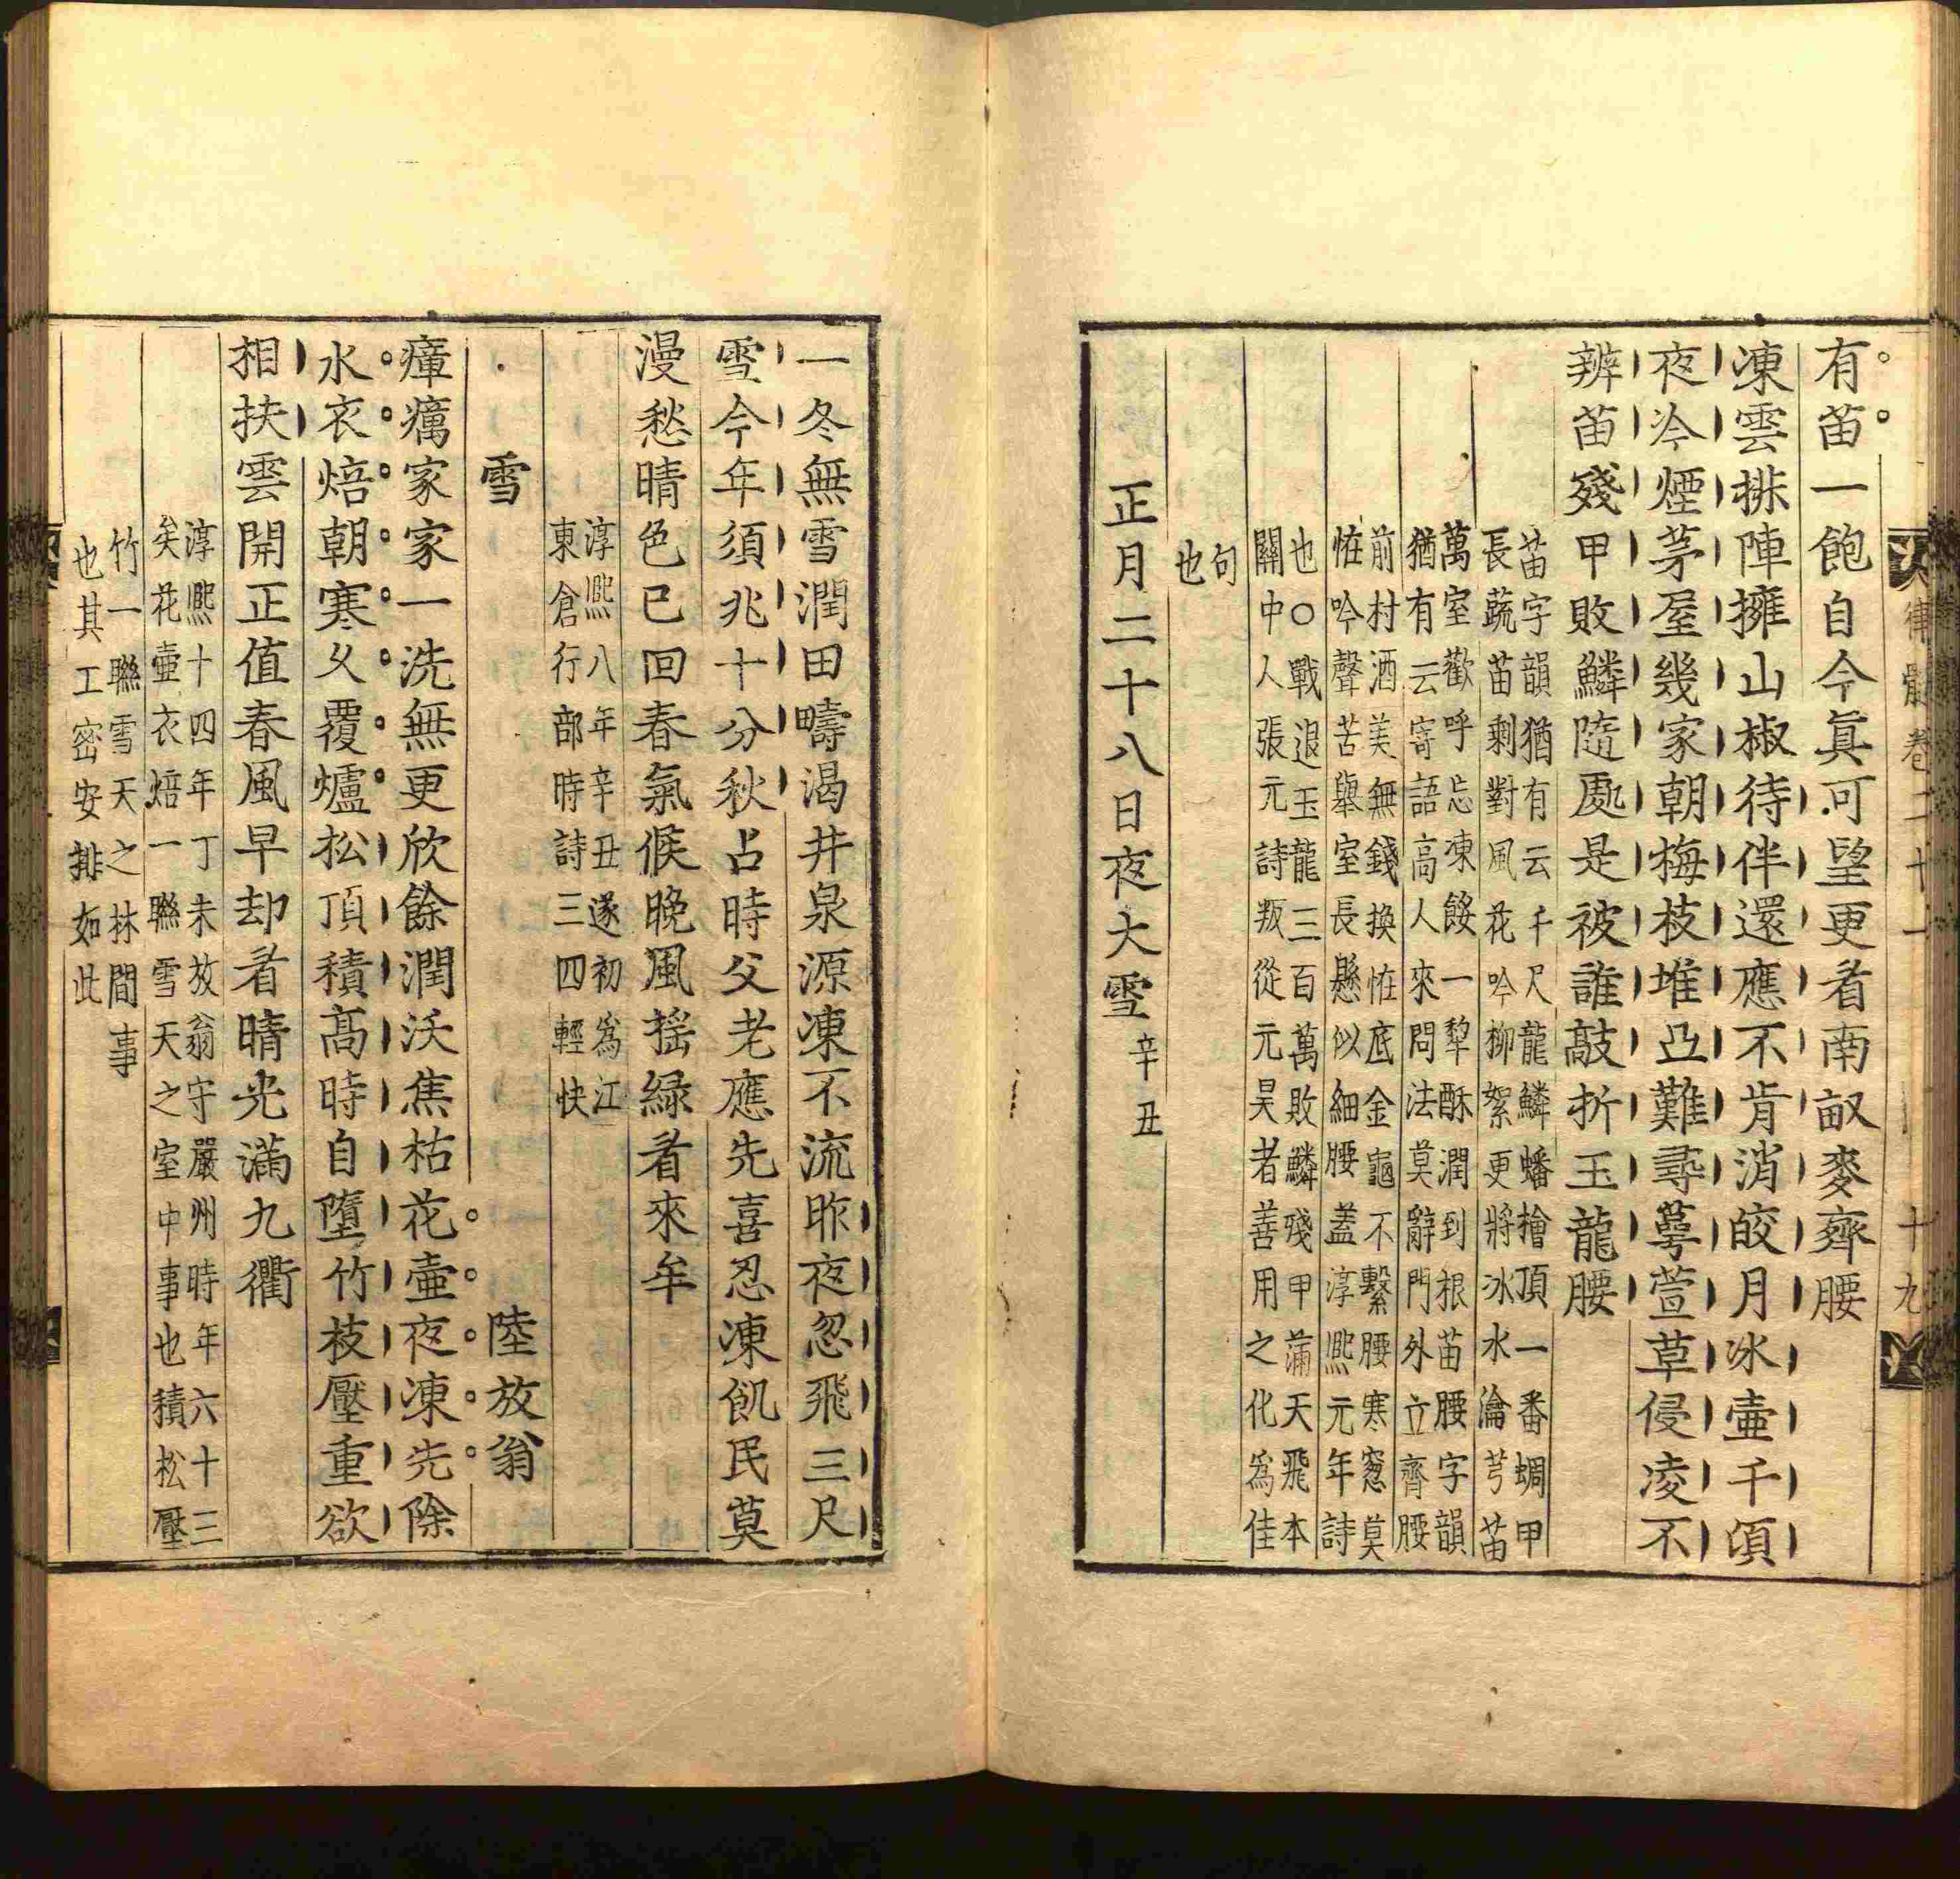 律髓卷二十一
十九
有苗一飽自今眞可望更看南畝麥齊腰
凍雲排陣擁山椒待伴還應不肯消皎月冰壷千頃
夜冷煙茅屋幾家朝梅枝堆亞難尋蕚萱草侵凌不
辨苗殘甲敗鱗隨處是被誰敲折玉龍腰
苗字韻猶有云千尺龍鱗蟠檜頂一番蜩甲
長蔬苗剩對風花吟柳絮更將冰水瀹芎苗
萬室歡呼忘凍餒一犂酥潤到根苗腰字韻
猶有云寄語高人來問法莫辭門外立齊腰
前村酒美無錢換恠底金龜不繫腰寒窻莫
恠吟聲苦舉室長懸似細腰蓋淳熈元年詩
也○戰退玉龍三百萬敗鱗殘甲滿天飛本
關中人張元詩叛從元昊者善用之化爲佳
句
也
正月二十八日夜大雪辛丑
一冬無雪潤田疇渴井泉源凍不流昨夜忽飛三尺
雪今年須兆十分秋占時父老應先喜忍凍飢民莫
漫愁晴色已回春氣候晚風揺緑看來牟
淳熈八年辛丑遂初爲江
東倉行部時詩三四輕快
雪　陸放翁
瘴癘家家一洗無更欣餘潤沃焦枯花壷夜凍先除
水衣焙朝寒乆覆爐松頂積高時自墮竹枝壓重欲
相扶雲開正值春風早却看晴光滿九衢
淳熈十四年丁未放翁守嚴州時年六十三
矣花壷衣焙一聯雪天之室中事也積松壓
竹一聯雪天之林間事
也其工密安排如此